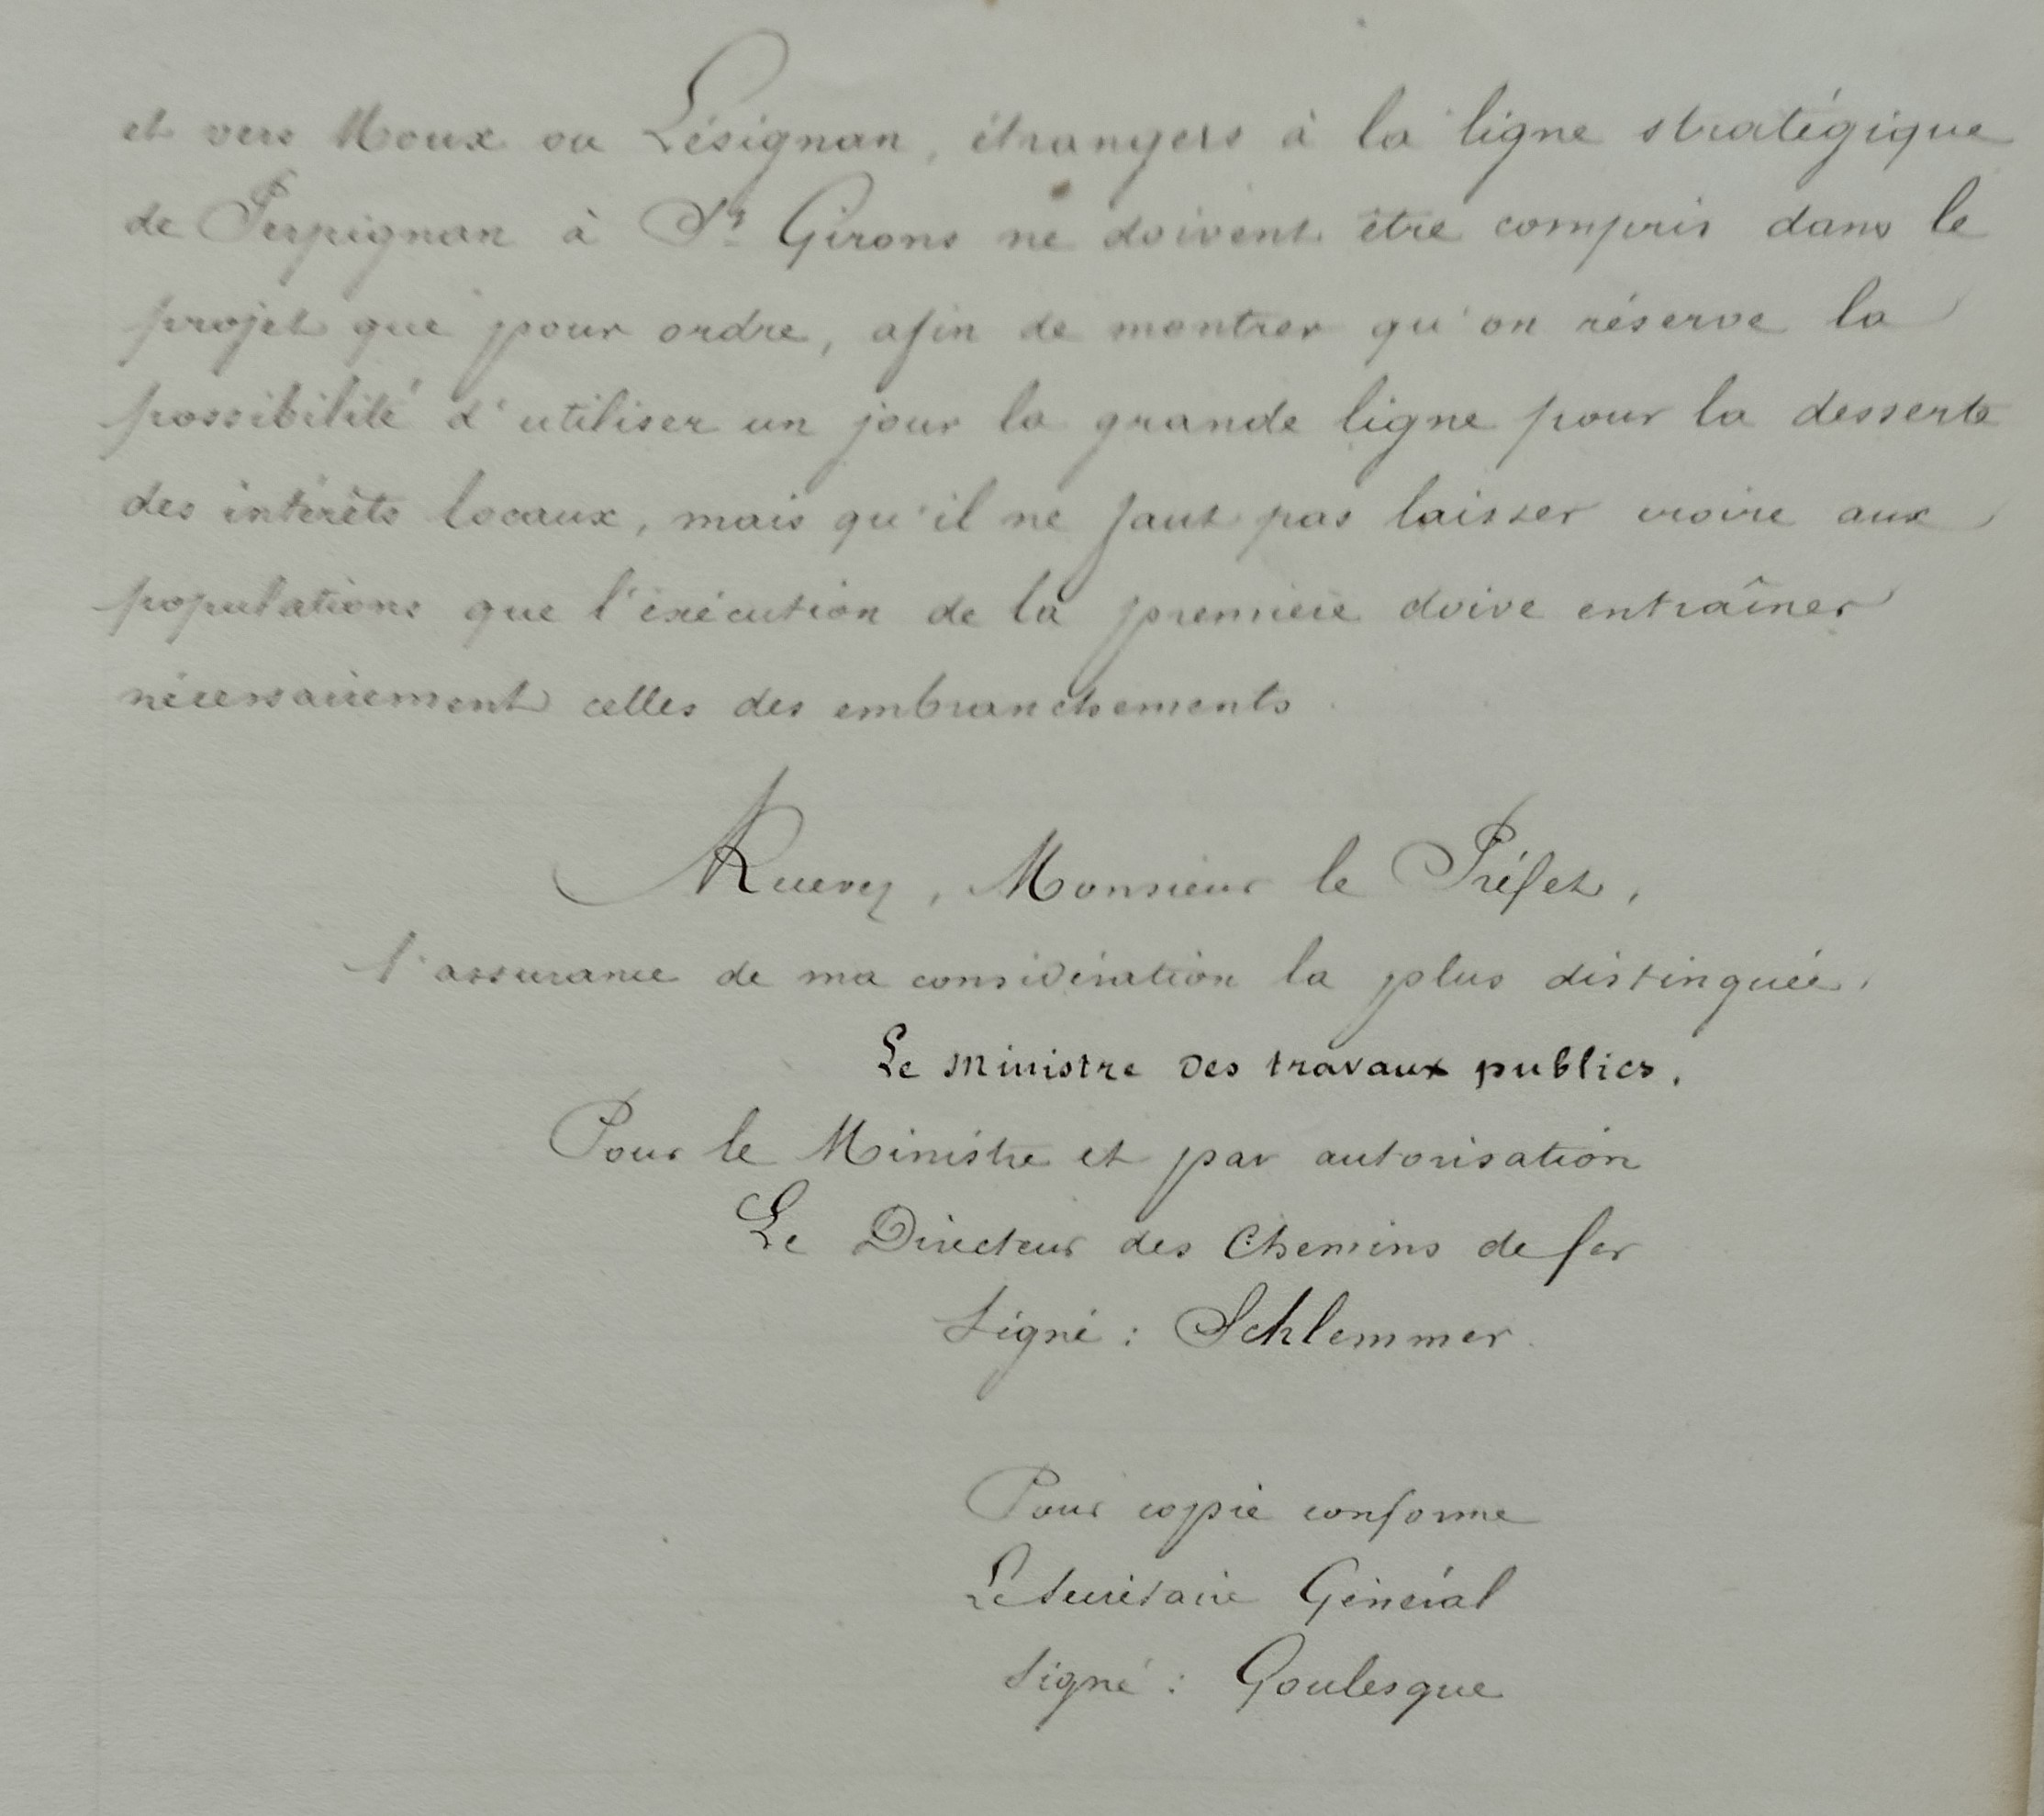 et vers Moux ou Lésignan, étrangers à la ligne stratégique
de Perpignan à St Girons ne doivent être compris dans le
projet que pour ordre, afin de montrer qu'on réserve la
possibilité d'utiliser un jour la grande ligne pour la desserte
des intérêts locaux, mais qu'il ne faut pas laisser croire aux
populations que l'exécution de la première doive entraîner
nécessairement celles des embranchements.
Recevez, Monsieur le Préfet,
l'assurance de ma considération la plus distinguée.
Le Ministre des travaux publics.
Pour le Ministre et par autorisation
Le Directeur des Chemins de fer
Signé : Schlemmer.
Pour copie conforme
Le Secrétaire Général
Signé : Goulesque